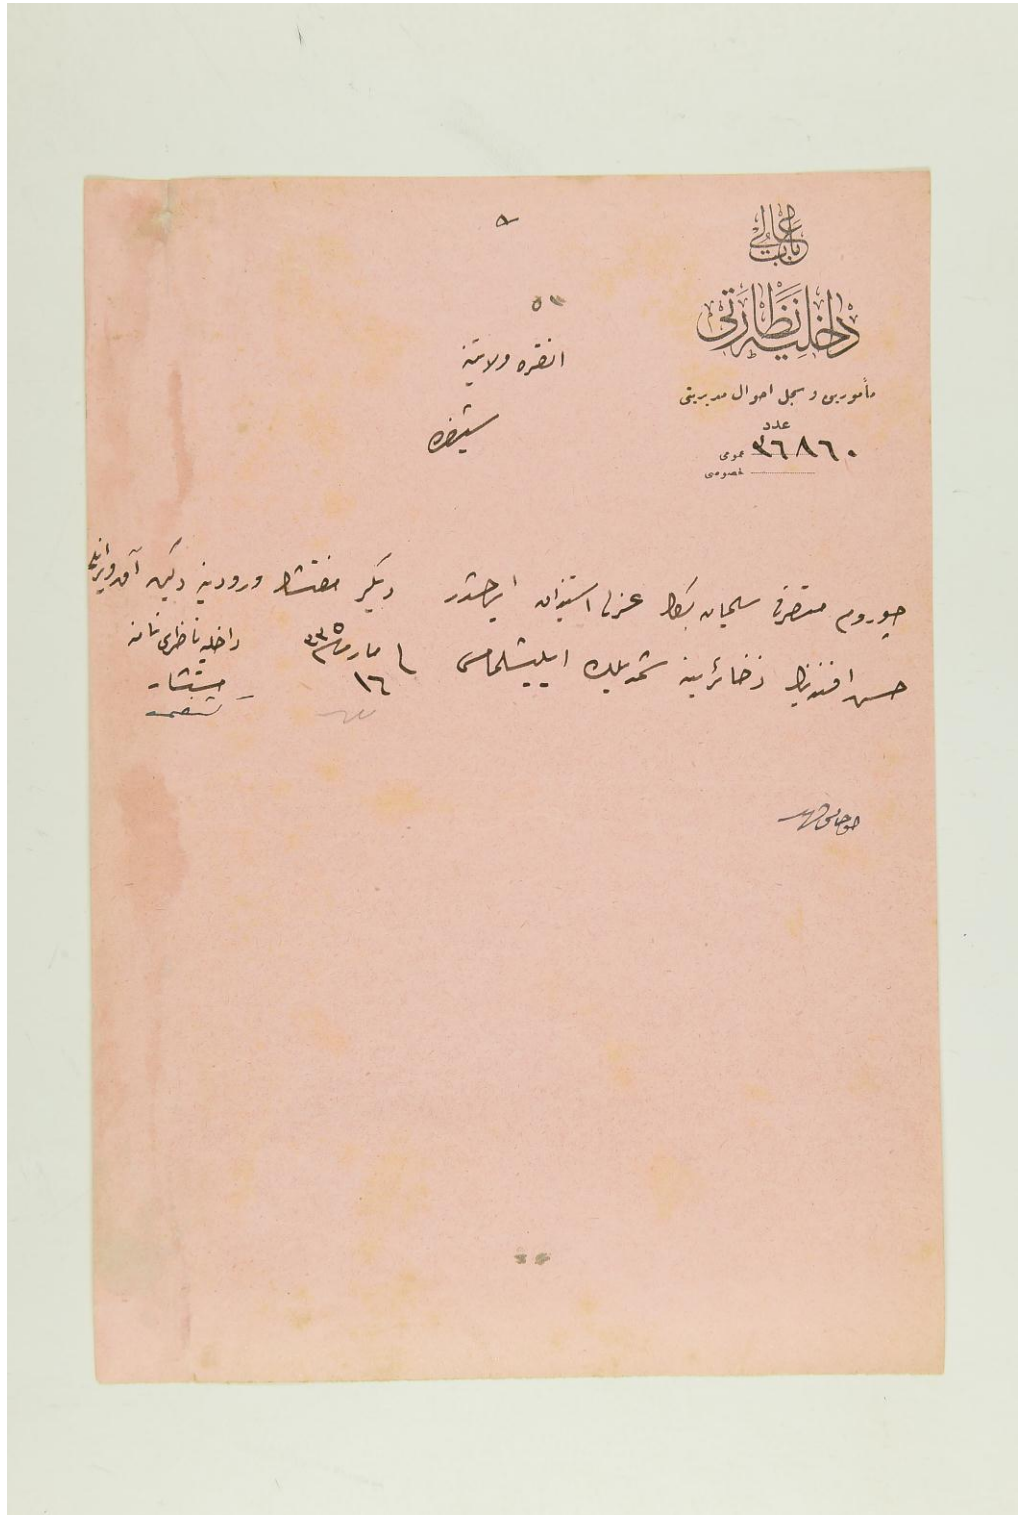 باب عالی
داخلیه نظارتی
مأمورین و سجل احوال مدیریتی
عدد
عمومی ٣٦٨٦٠
خصوصی
انقره ولایتنه
شیفره
چوروم متصرفی سلیمان بكك عزلی استیذان ایدلمشدر دیكر مفتشك ورودینه دكین
حسن افندینك ذخائرینه شمدیلك ایلیشلمامسی
١٦ مارت ٣٣٥
داخلیه ناظری نامنه
مستشار